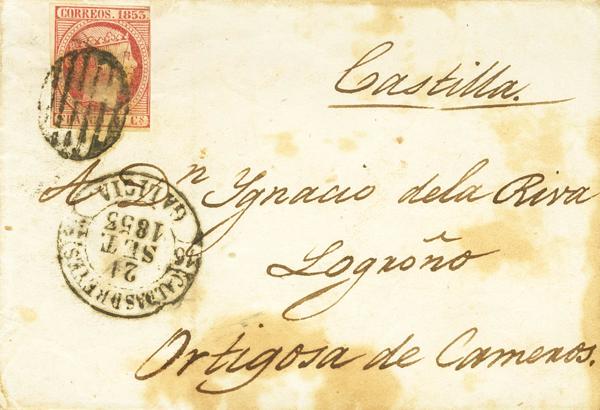 CORREOS. 1853
SEIS CS
Castilla.
A Dn Ygnacio dela Riva
Logroño
Ortigosa de Cameros.
CALDAS D REYES
21
SET
1853
GALICIA